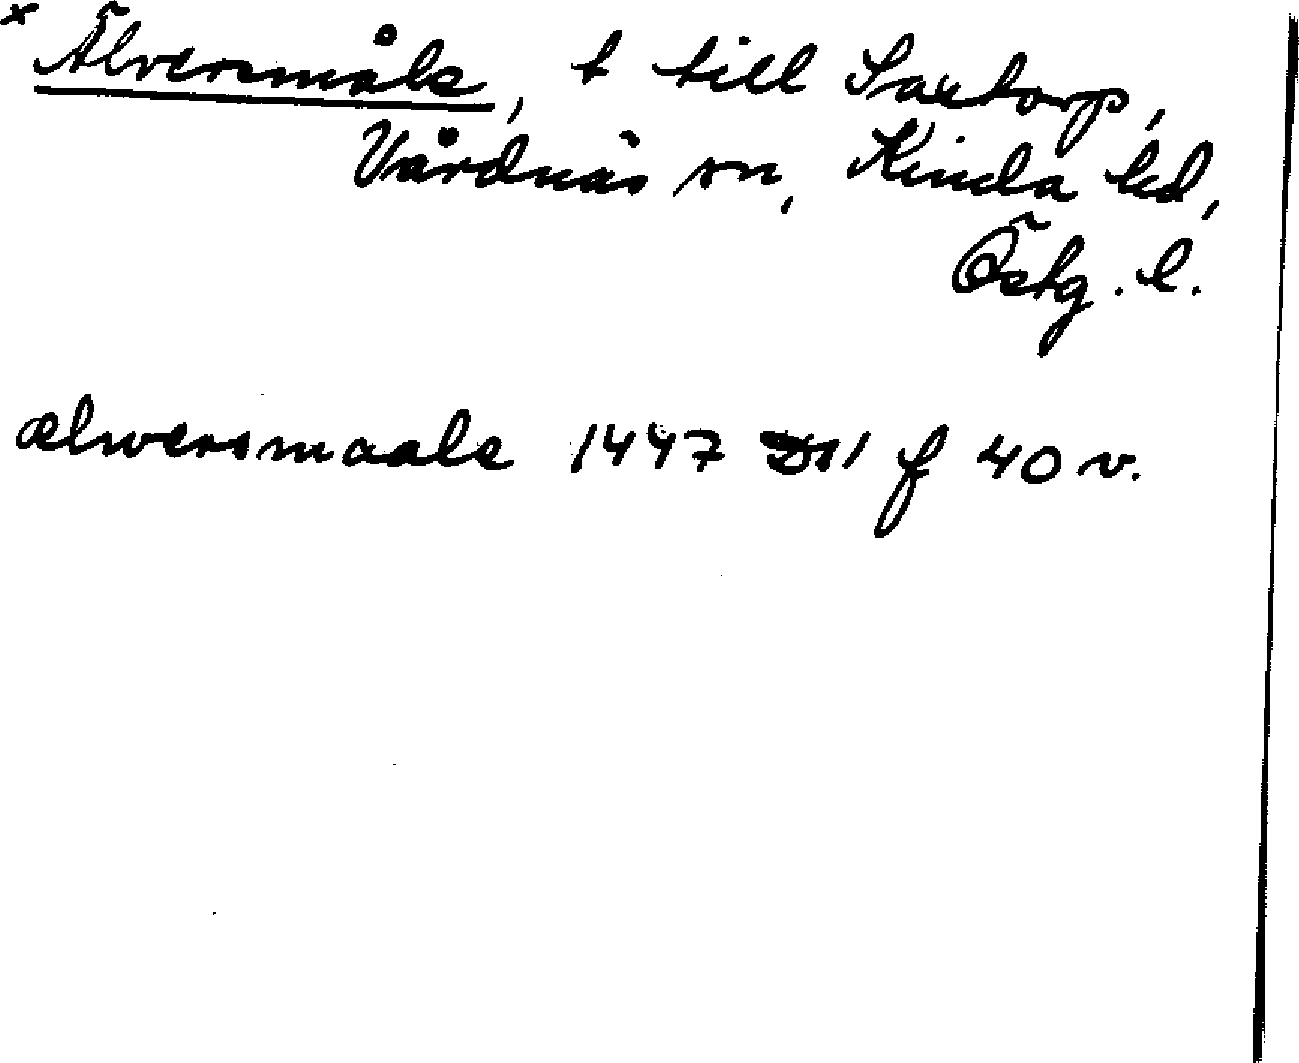 x Älversmåla, t till Saxtorp,
Vårdnäs sn, Kinda hd,
Östg. l.
ælwersmaale 1447 f 40 v.